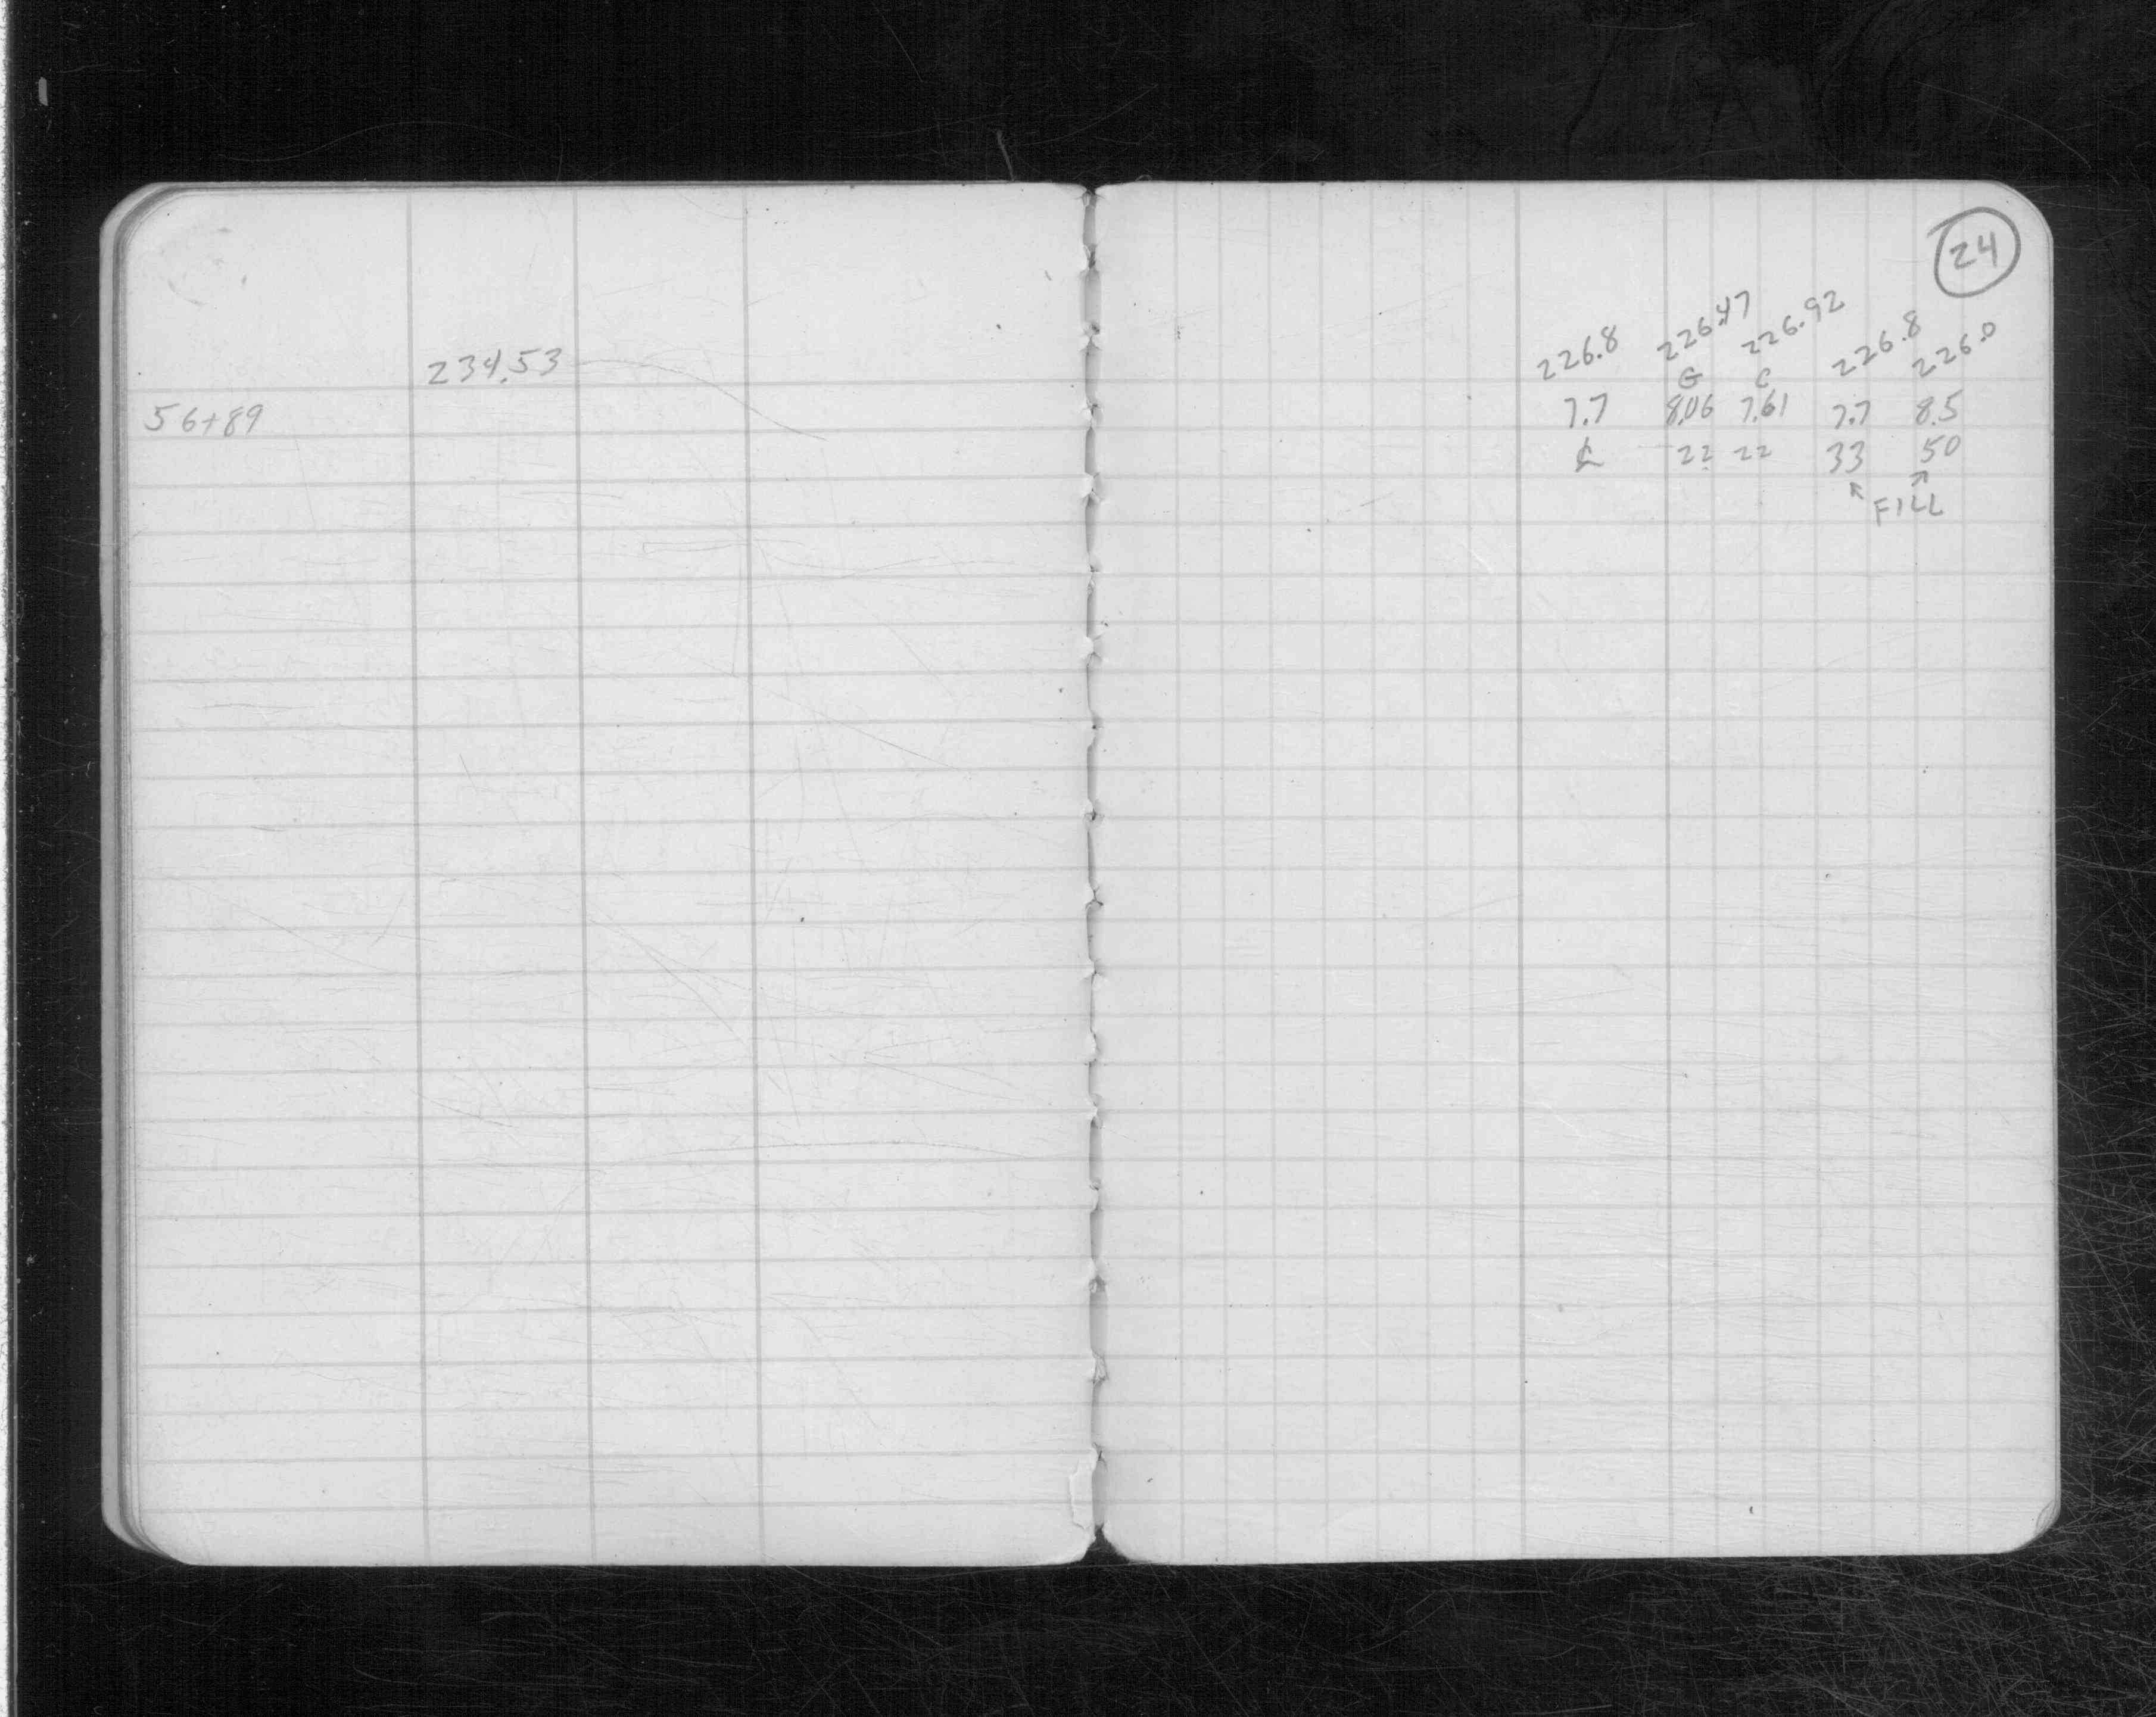 24
234.53
56+89
226.8 226.47 226.92 226.8 226.0
G C
7.7 8.06 7.61 7.7 8.5
℄ 22 22 33 50
FILL